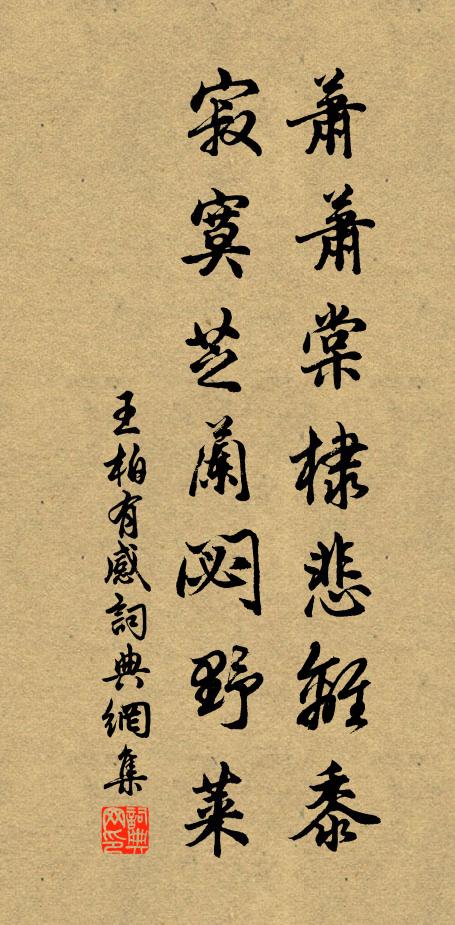 蕭蕭棠棣悲離黍
寂寞芝蘭閟野萊
王柏有感詞典網集
詞典網印